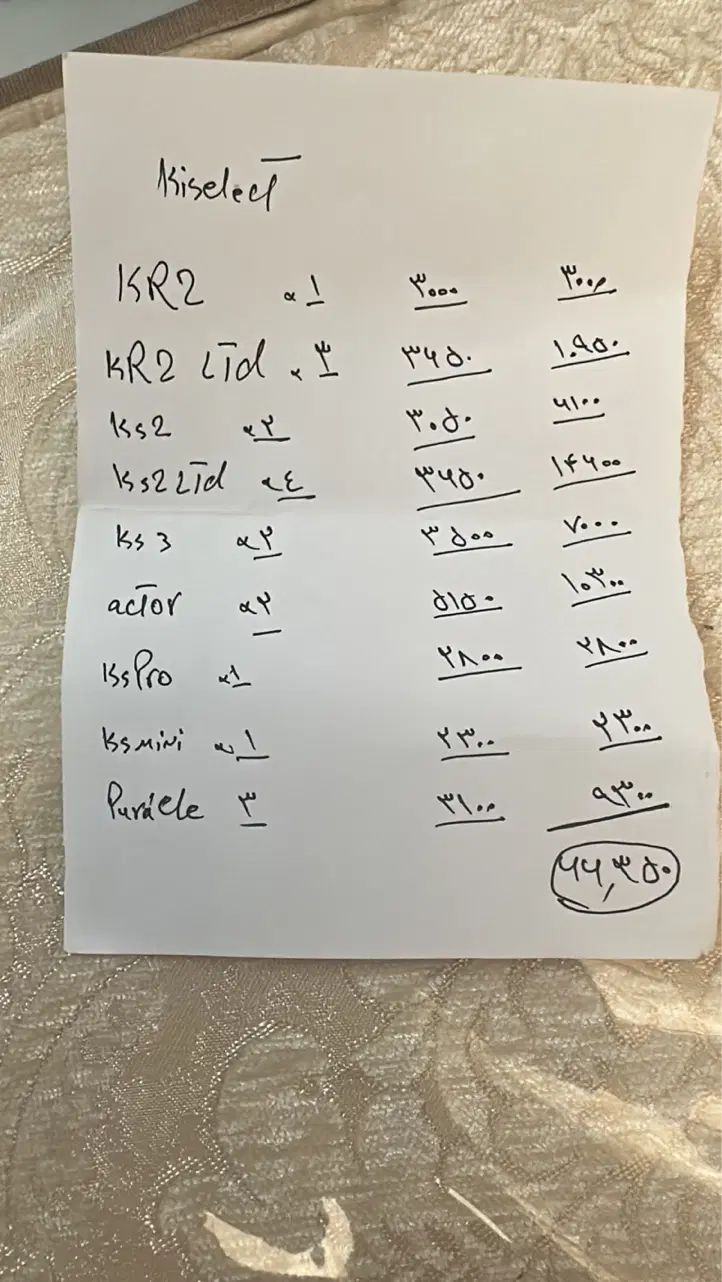 Kiselect
KR2 × ۱ ۳۰۰۰ ۳۰۰۰
KR2 LTd × ۳ ۳۶۵۰ ۱۰۹۵۰
Ks2 × ۲ ۳۰۵۰ ۶۱۰۰
Ks2 LTd × ٤ ۳۶۵۰ ۱۴۶۰۰
Ks3 × ۲ ۳۵۰۰ ۷۰۰۰
actor × ۲ ۵۱۵۰ ۱۰۳۰۰
KsPro × ۱ ۲۸۰۰ ۲۸۰۰
Ksmini × ۱ ۲۳۰۰ ۲۳۰۰
۳ ۳۱۰۰ ۹۳۰۰
۶۶,۳۵۰